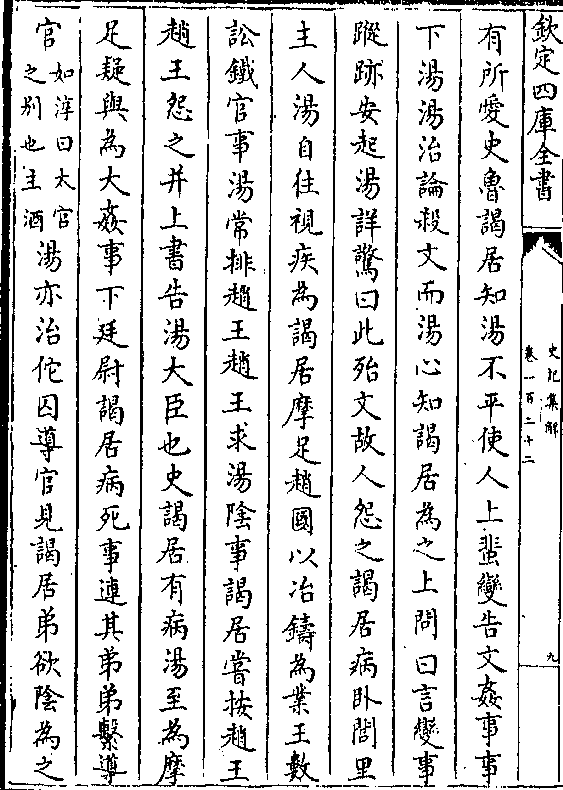 欽定四庫全書
史記集解
卷一百二十二
九
有所愛史魯謁居知湯不平使人上蜚變告文姦事事
下湯湯治論殺文而湯心知謁居為之上問曰言變事
蹤跡安起湯詳驚曰此殆文故人怨之謁居病卧閭里
主人湯自往視疾為謁居摩足趙國以冶鑄為業王數
訟鐵官事湯常排趙王趙王求湯陰事謁居嘗按趙王
趙王怨之并上書告湯大臣也史謁居有病湯至為摩
足疑與為大姦事下廷尉謁居病死事連其弟弟繫導
官如淳曰太官之别也主酒湯亦治佗囚導官見謁居弟欲陰為之